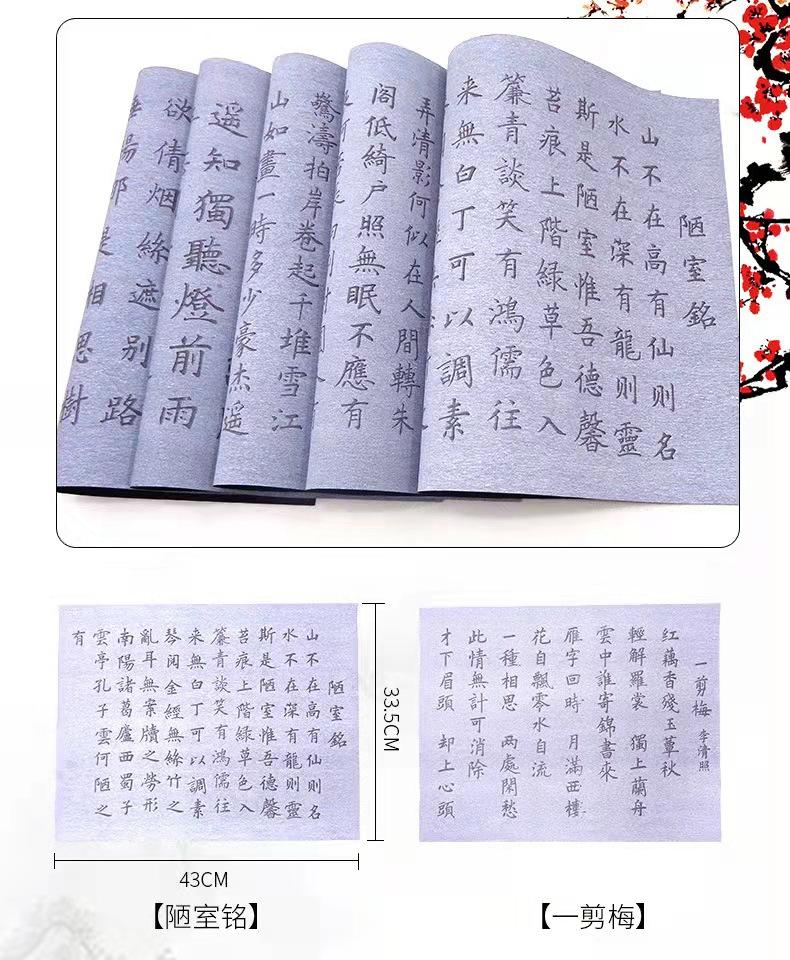 陋室銘
山不在高有仙则名
水不在深有龍则靈
斯是陋室惟吾德馨
苔痕上階緑草色入
簾青談笑有鴻儒往
来無白丁可以調素
弄清影何似在人間轉朱
阁低綺户照無眠不應有
驚濤拍岸卷起千堆雪江
山如畫一時多少豪杰遥
遥知獨聽燈前雨
欲倩烟絲遮别路
垂楊那是相思樹
陋室銘
山不在高有仙则名
水不在深有龍则靈
斯是陋室惟吾德馨
苔痕上階緑草色入
簾青談笑有鴻儒往
来無白丁可以調素
琴阅金經無絲竹之
亂耳無案牘之勞形
南陽諸葛廬西蜀子
雲亭孔子雲何陋之
有
33.5CM
43CM
【陋室铭】
一剪梅 李清照
红藕香殘玉簟秋
輕解羅裳 獨上蘭舟
雲中誰寄錦書來
雁字回時 月滿西樓
花自飄零水自流
一種相思 两處閑愁
此情無計可消除
才下眉頭 却上心頭
【一剪梅】